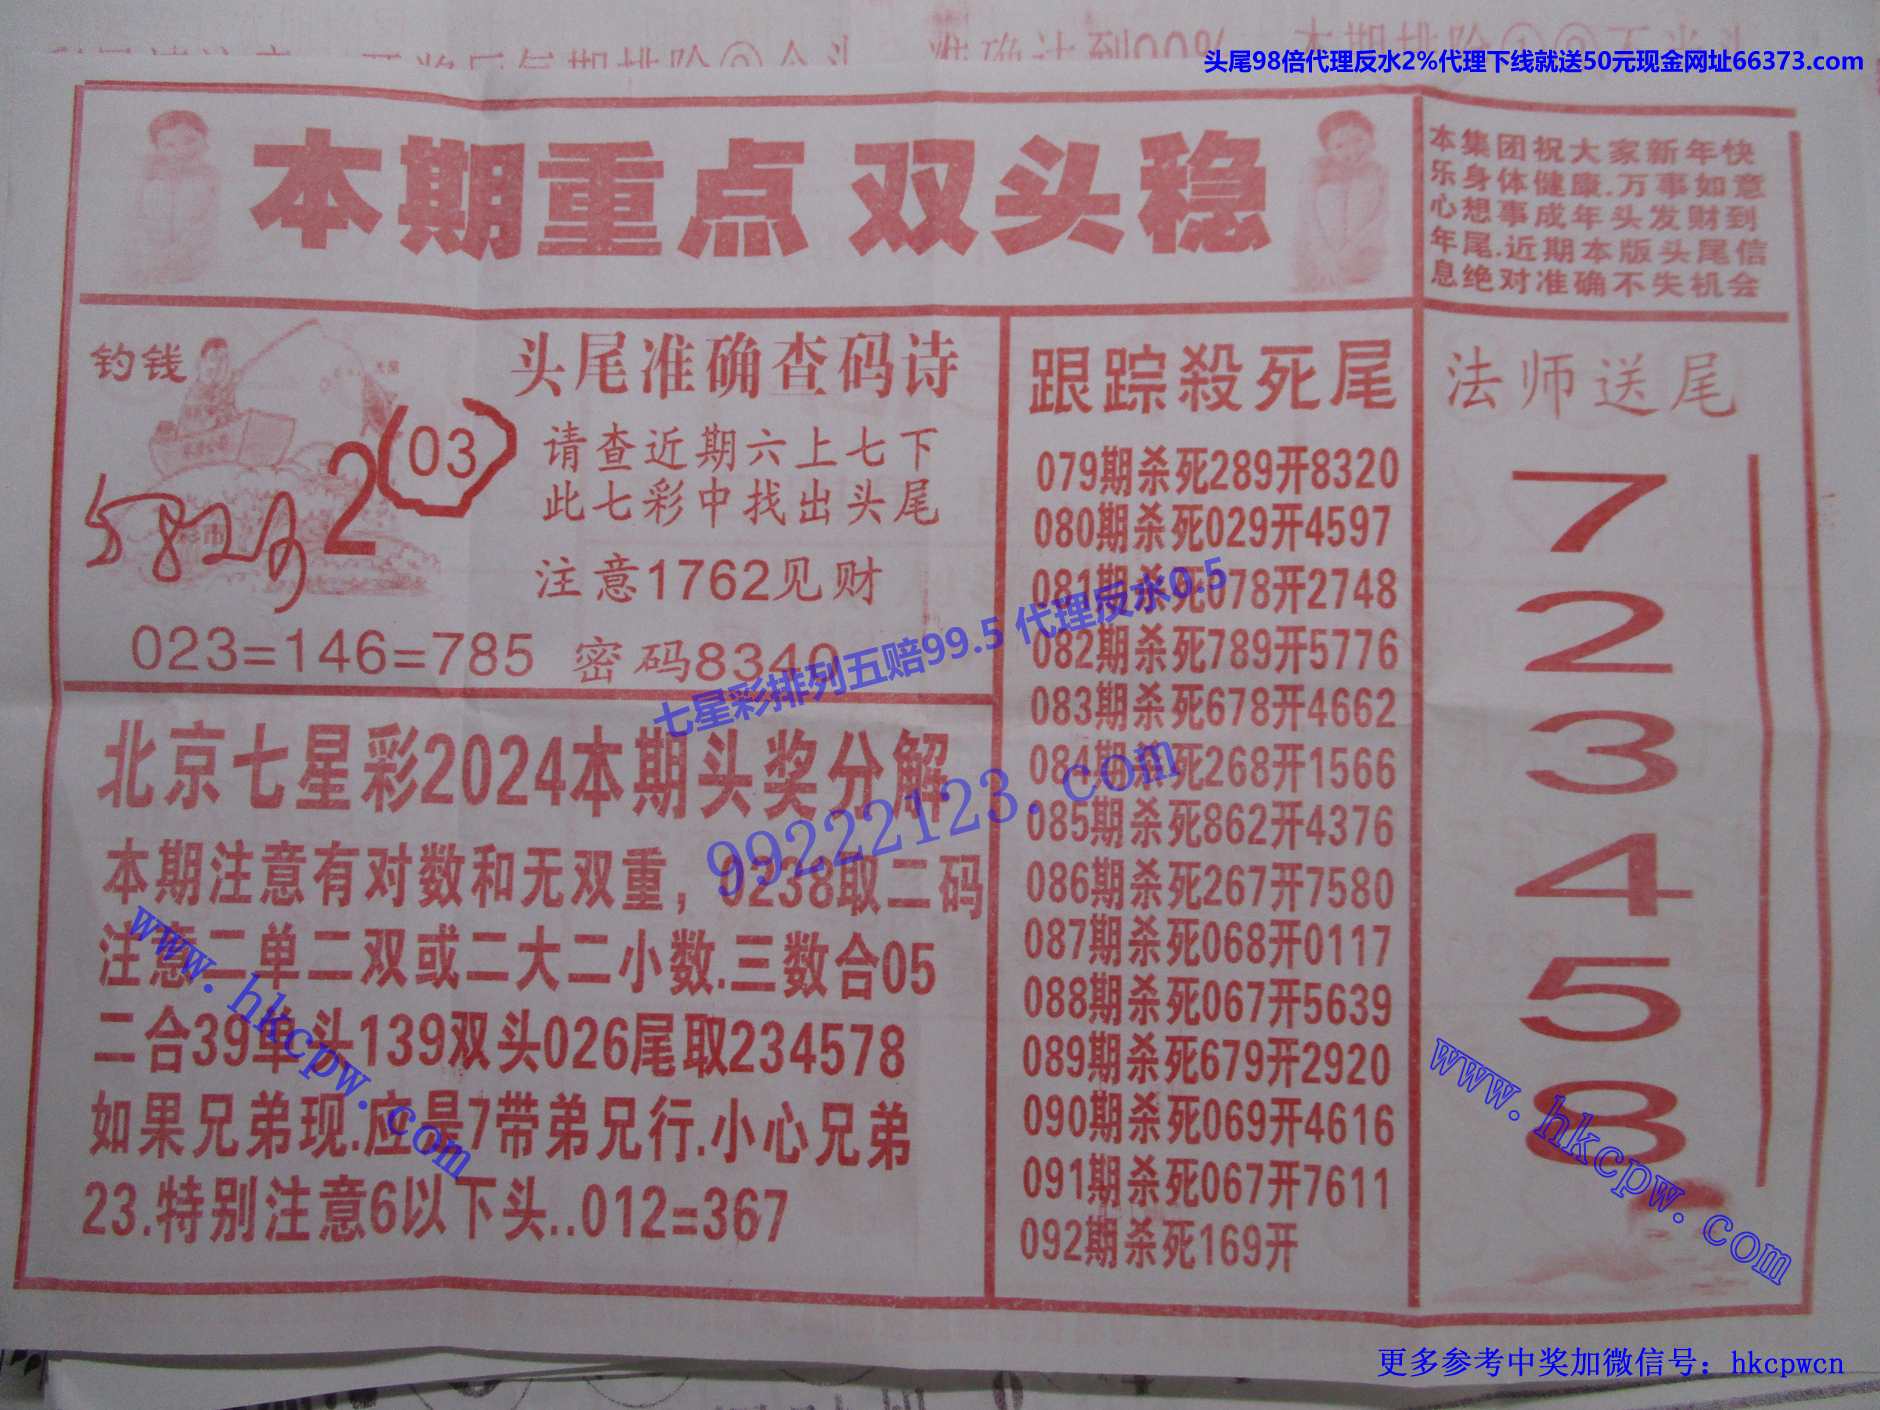 头尾98倍代理反水2%代理下线就送50元现金网址66373.com
本期重点 双头稳
本集团祝大家新年快
乐身体健康.万事如意
心想事成年头发财到
年尾.近期本版头尾信
息绝对准确不失机会
钓钱
2
(03)
彩市
头尾准确查码诗
请查近期六上七下
此七彩中找出头尾
注意1762见财
023=146=785 密码8340
七星彩排列五赔99.5 代理反水0.5
99222123.com
北京七星彩2024本期头奖分解
本期注意有对数和无双重，0238取二码
注意二单二双或二大二小数.三数合05
二合39单头139双头026尾取234578
如果兄弟现.应是7带弟兄行.小心兄弟
23.特别注意6以下头..012=367
www.hkcpw.com
跟踪殺死尾
079期杀死289开8320
080期杀死029开4597
081期杀死078开2748
082期杀死789开5776
083期杀死678开4662
084期杀死268开1566
085期杀死862开4376
086期杀死267开7580
087期杀死068开0117
088期杀死067开5639
089期杀死679开2920
090期杀死069开4616
091期杀死067开7611
092期杀死169开
法师送尾
7
2
3
4
5
8
www.hkcpw.com
更多参考中奖加微信号：hkcpwcn